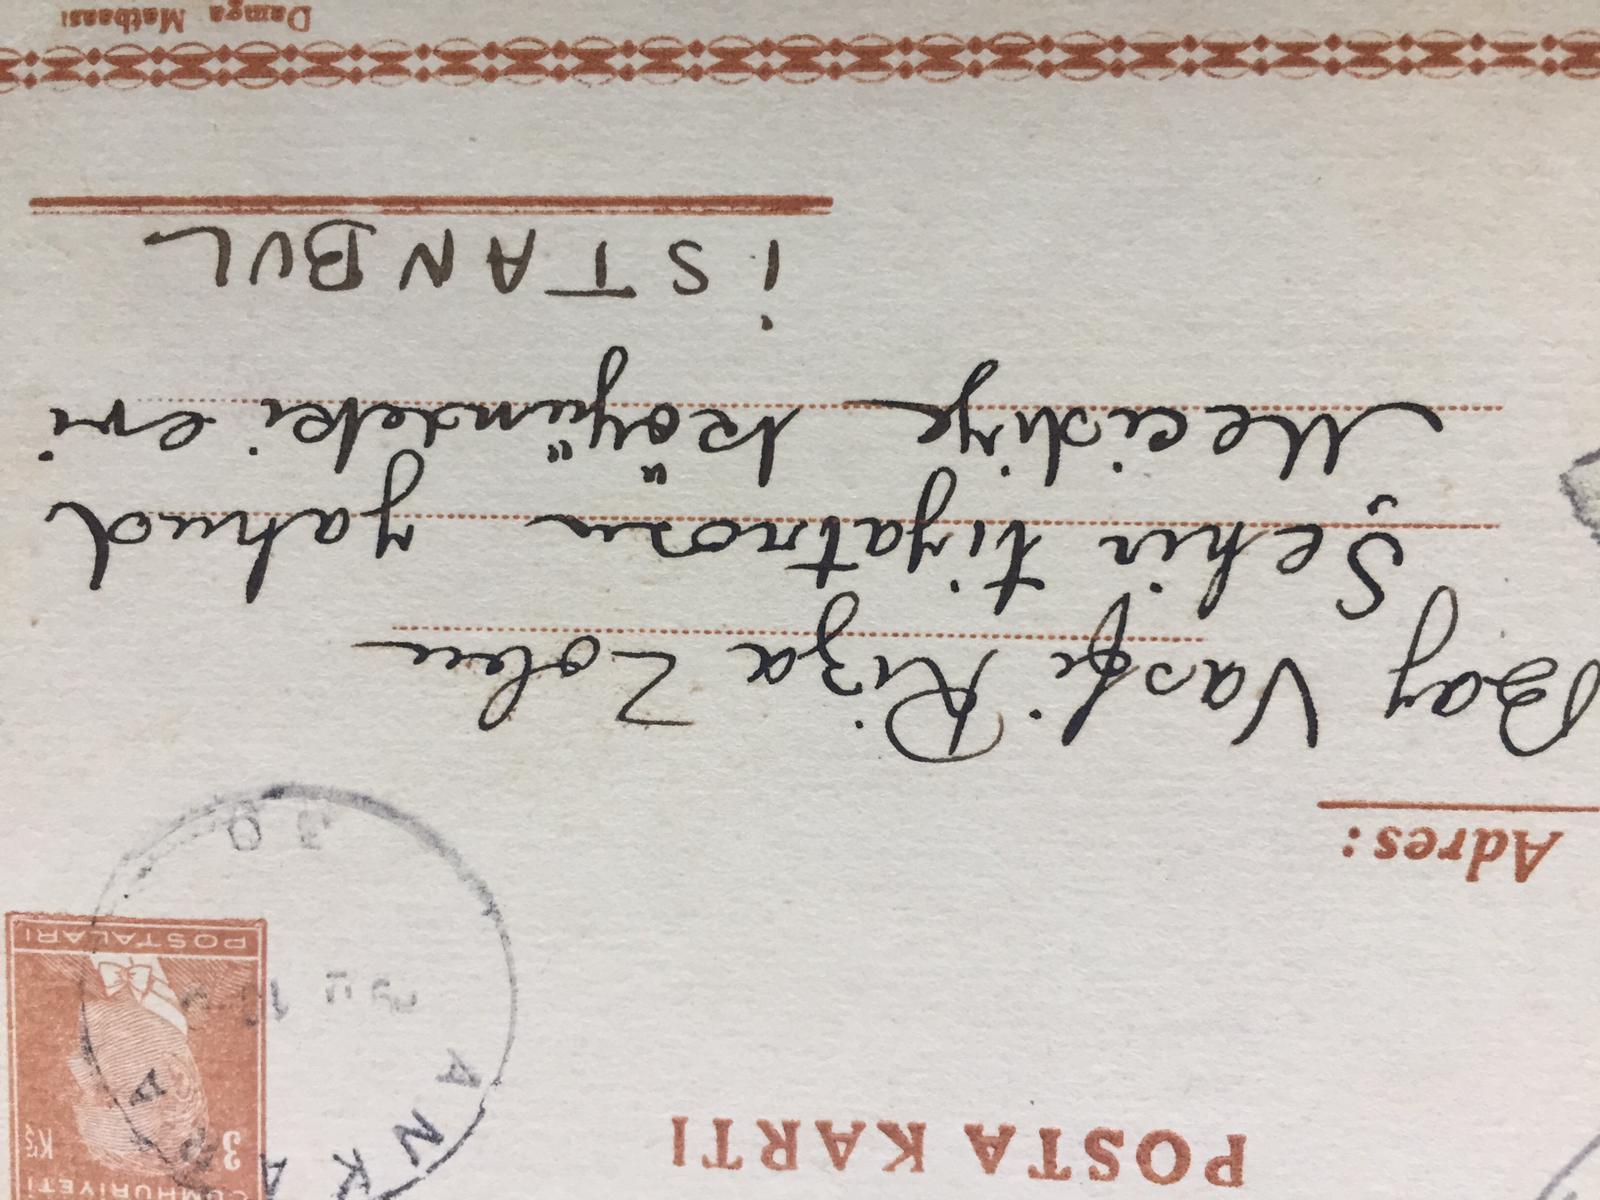 POSTA KARTI
CUMHURİYETİ
3 Kş
POSTALARI
ANKARA
Adres:
Bay Vasfi Rıza Zobu
Şehir tiyatrosu yahud
Mecidiye köyündeki evi
İSTANBUL
Damga Matbaası